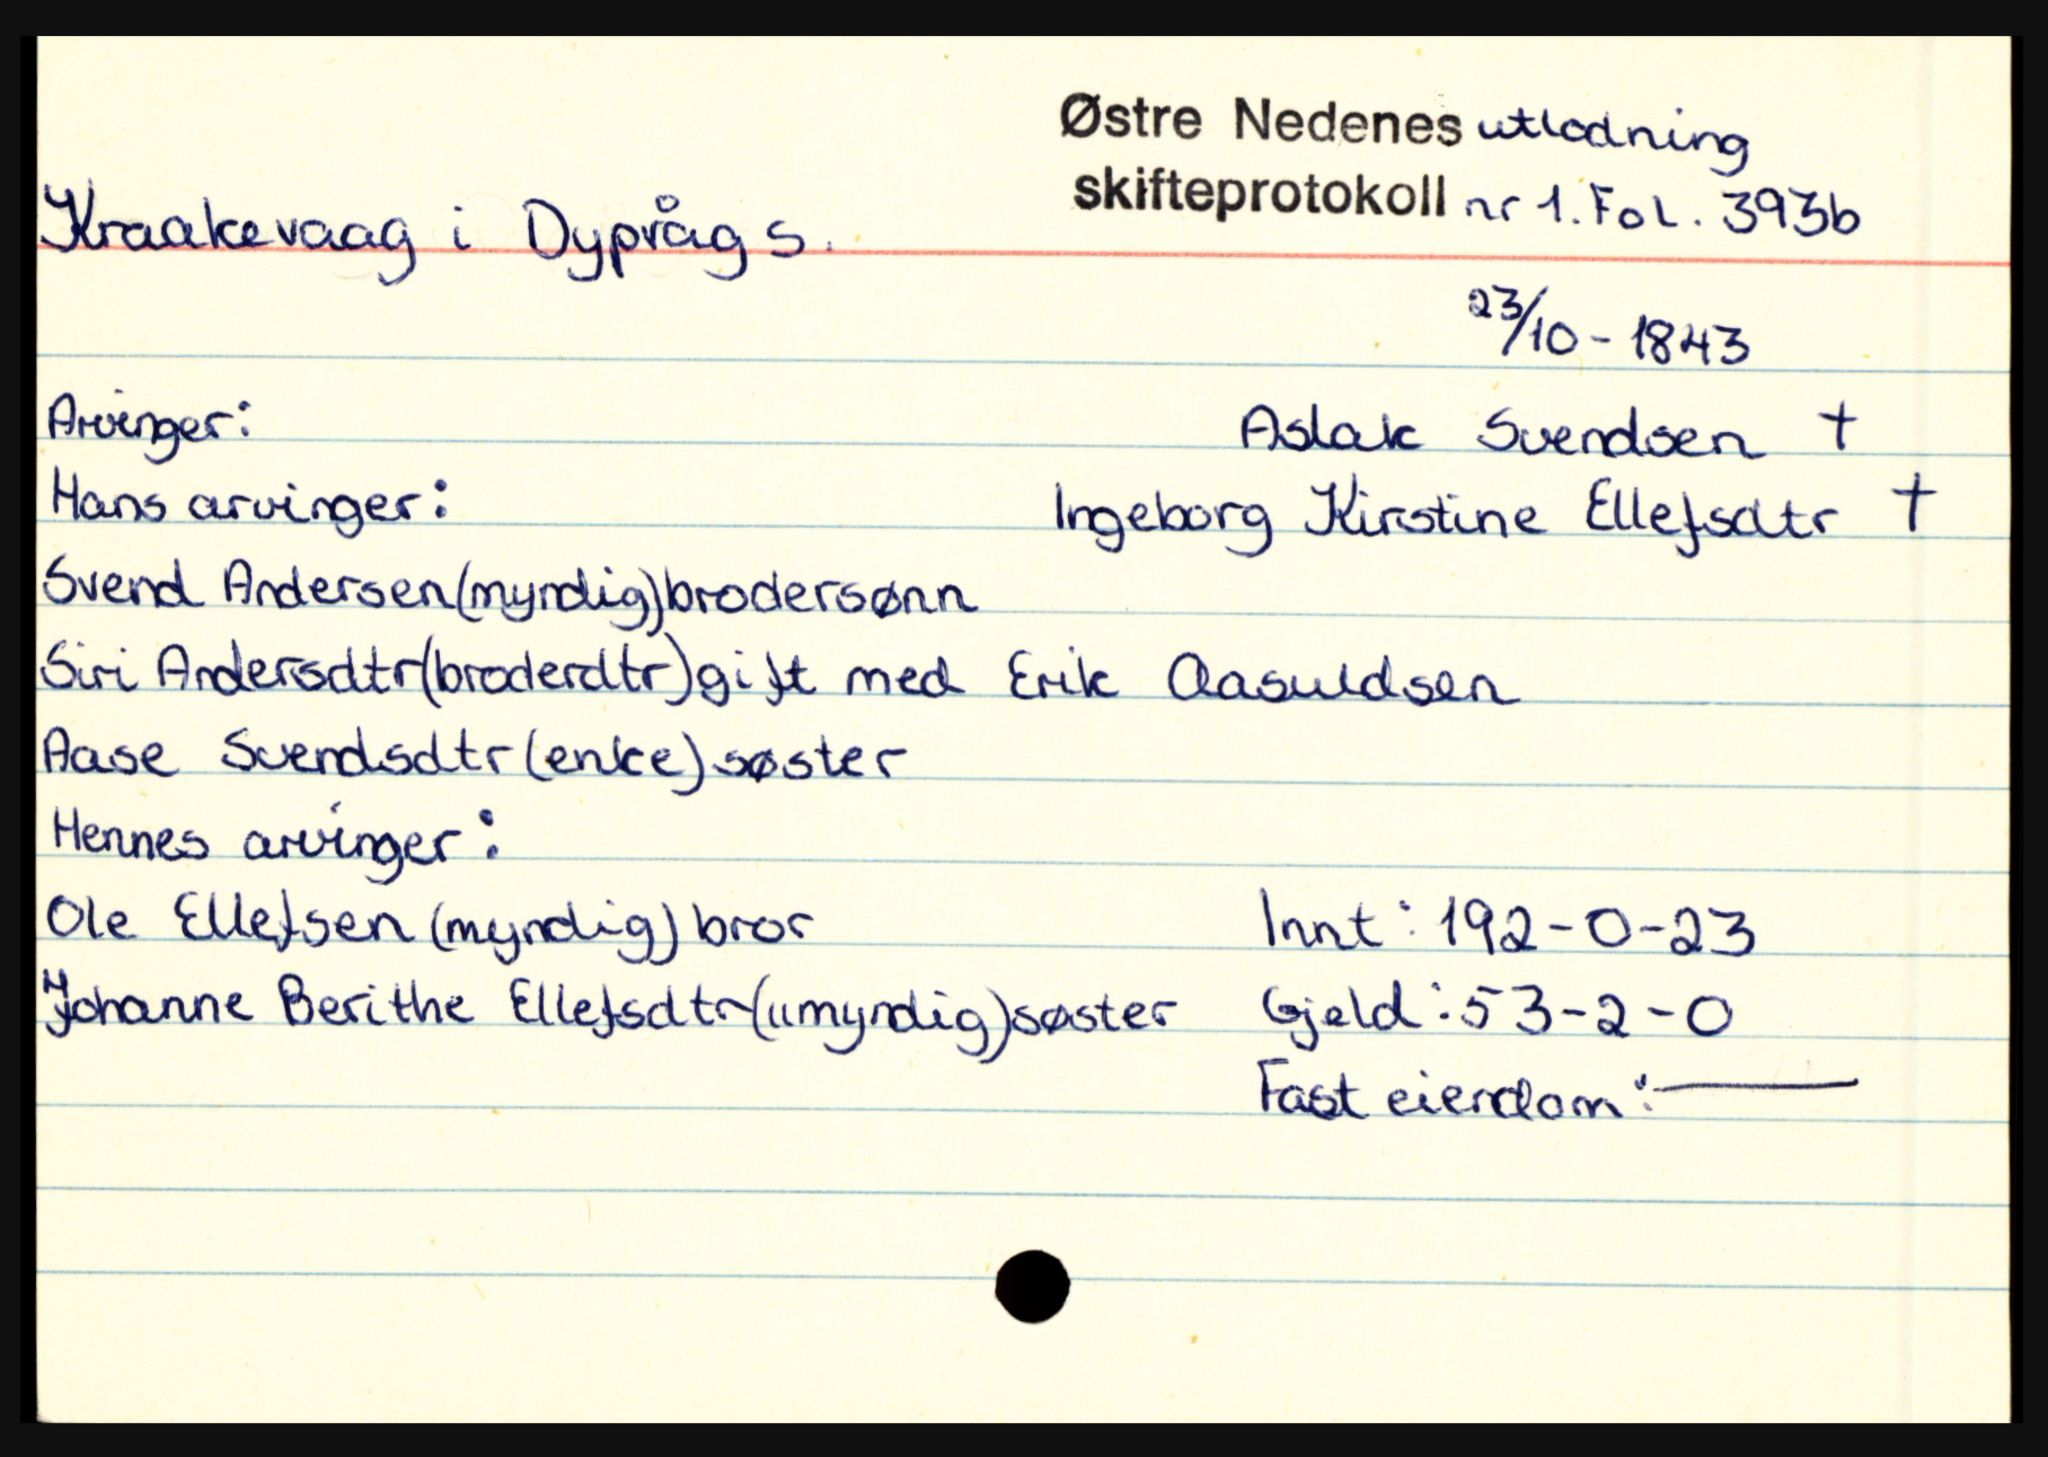 Østre Nedenes utlodning
skifteprotokoll nr 1. Fol. 393b
Kraakevaag i Dypvåg s.
23/10 - 1843
Arvinger:
Aslak Svendsen †
Hans arvinger:
Ingeborg Kirstine Ellefsdtr †
Svend Andersen (myndig) brodersønn
Siri Andersdtr (broderdtr) gift med Erik Aasuldsen
Aase Svendsdtr (enke) søster
Hennes arvinger:
Ole Ellefsen (myndig) bror
Innt: 192-0-23
Johanne Berithe Ellefsdtr (umyndig) søster
Gjeld: 53-2-0
Fast eiendom: —